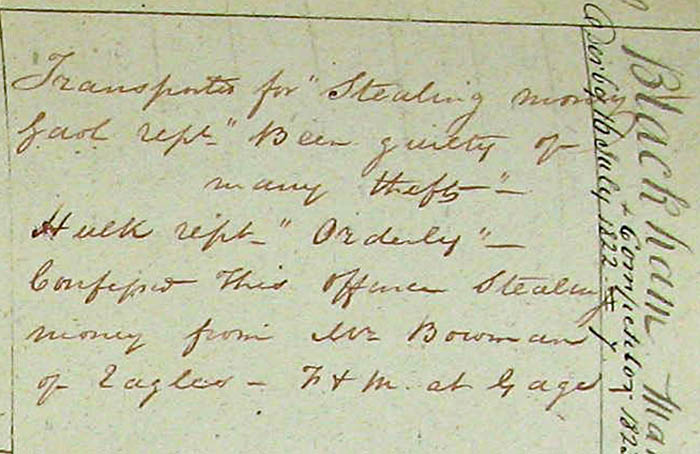 Transported for "Stealing money
Gaol rept- "Been guilty of
many thefts"-
Hulk rept- "Orderly"-
Confessed This Offence Stealing
money from Mr Bowman
of Eagles - F & M. at Gage
Blackham Ma
Derby 16 July 1822 7 y
Competitor 182